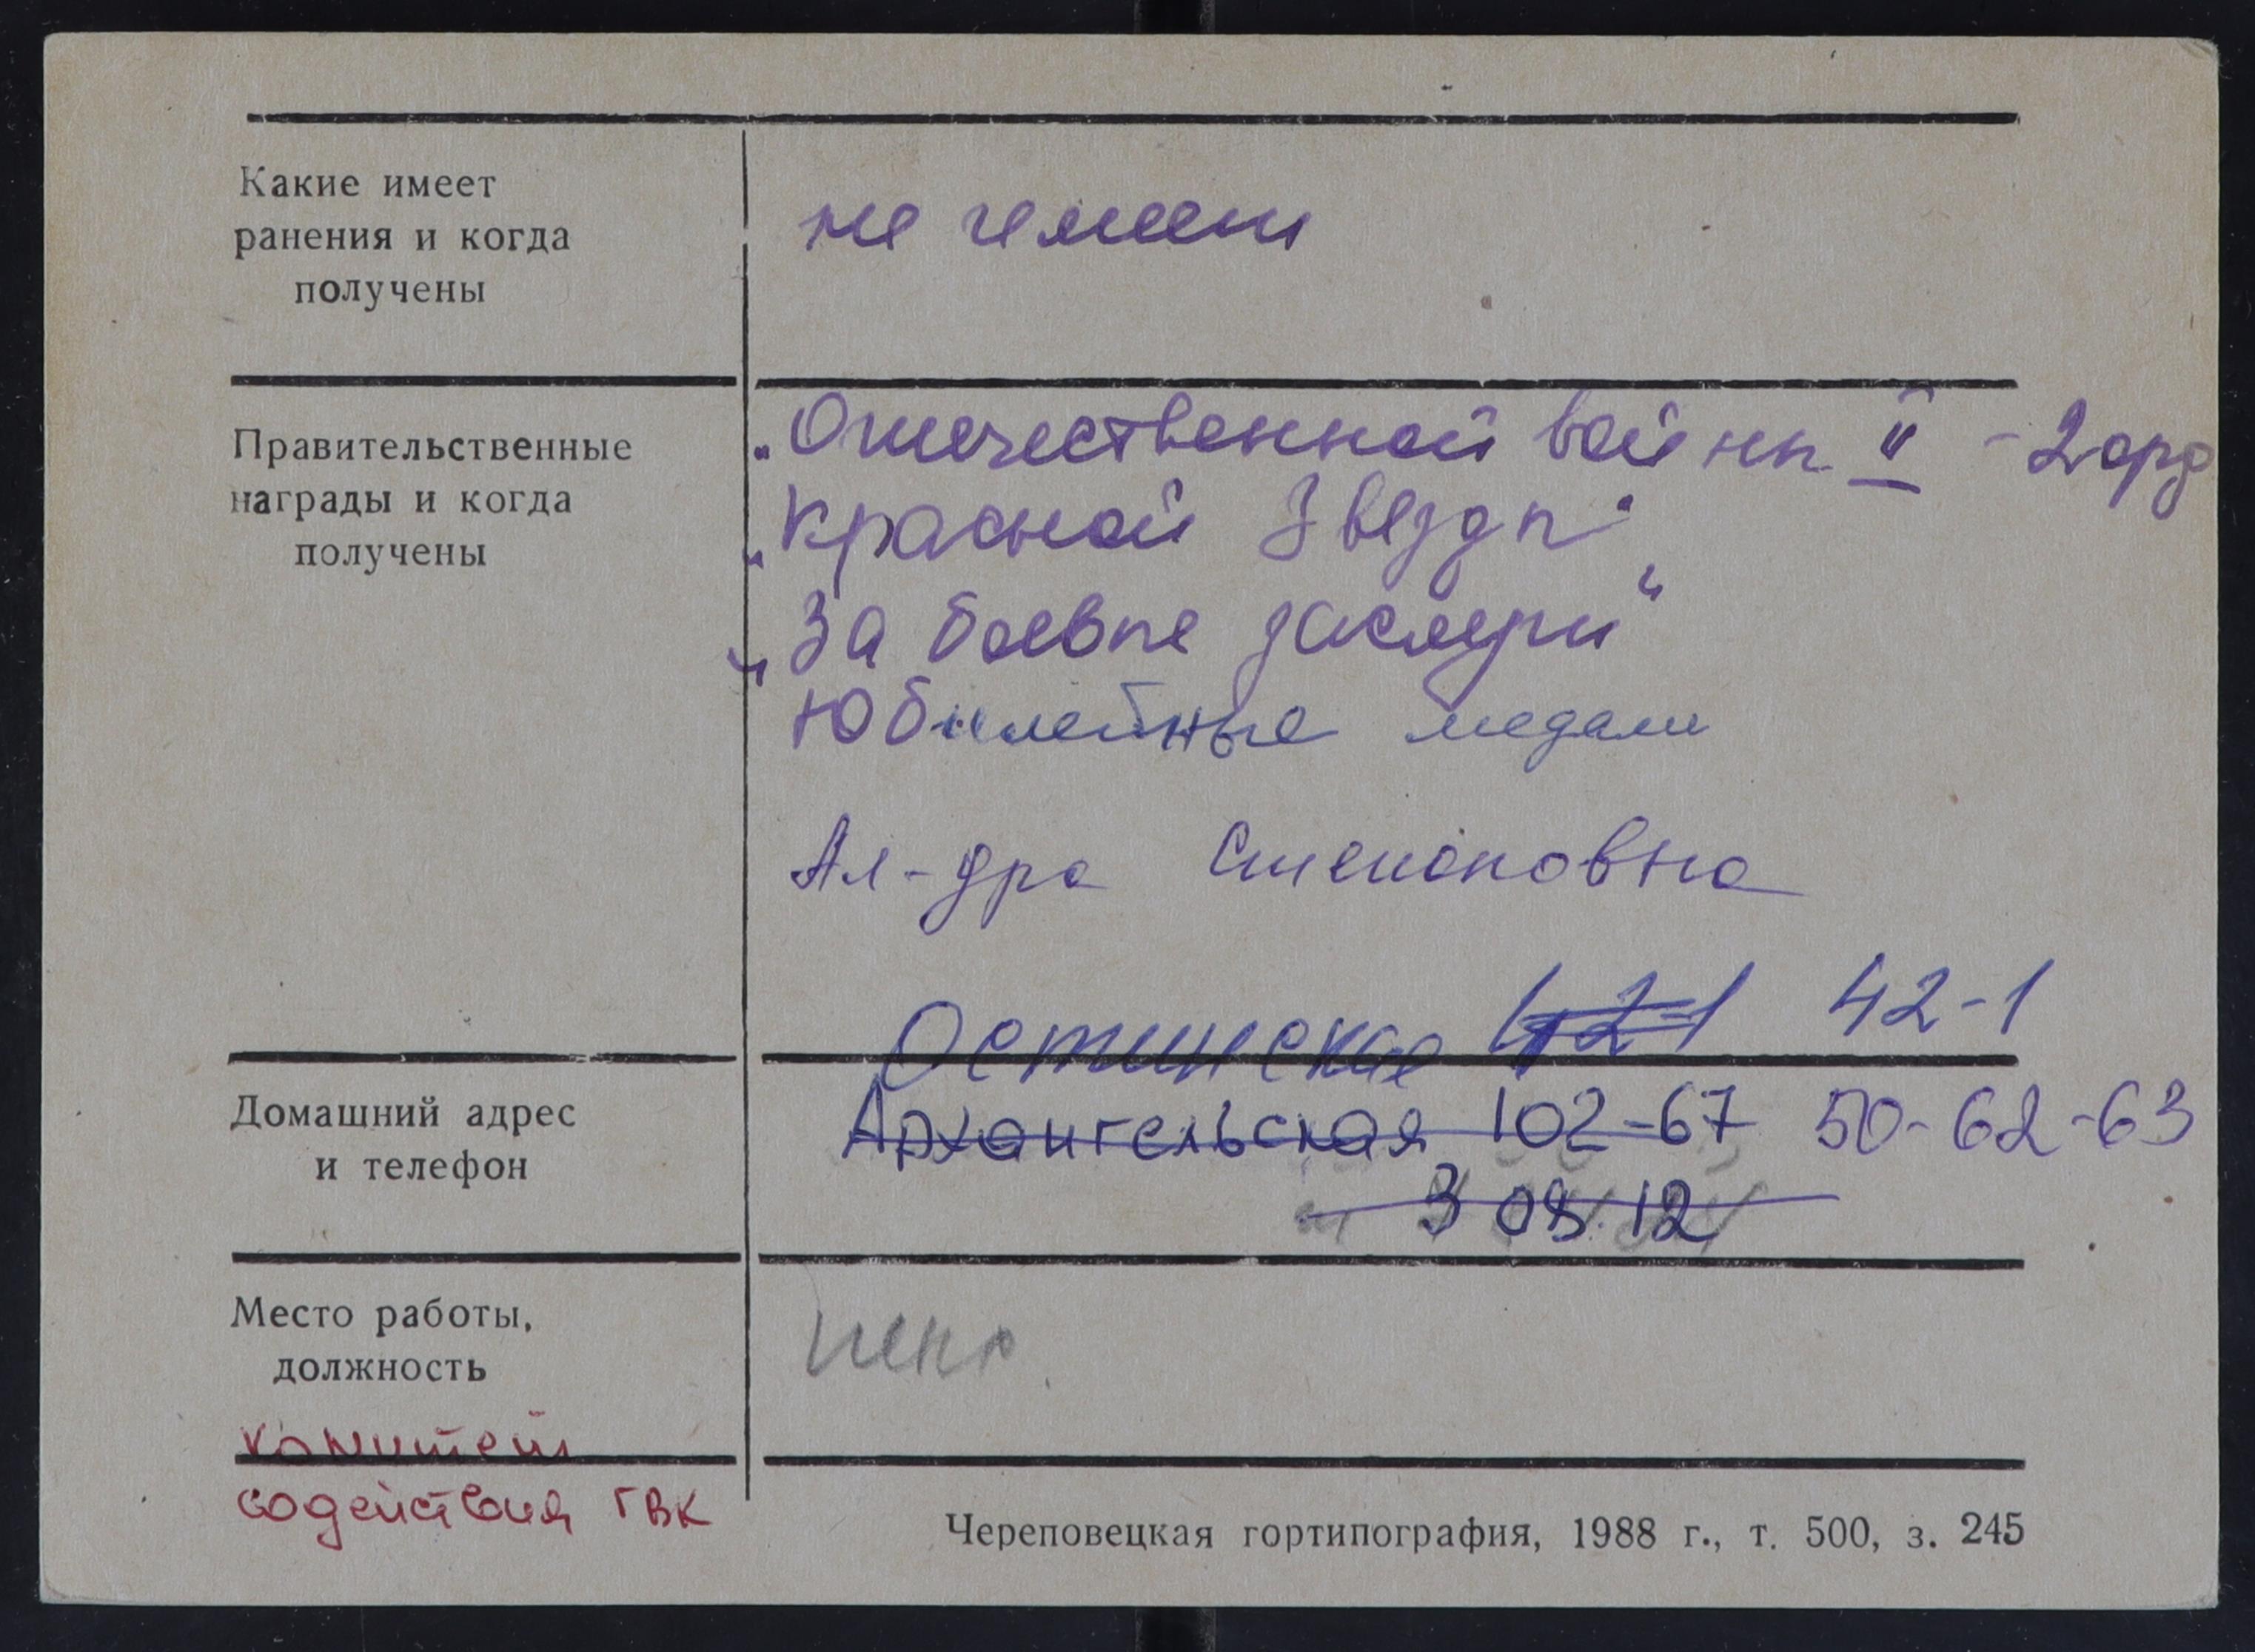 Какие имеет
ранения и когда
получены
не имеет
Правительственные
награды и когда
получены
„Отечественной войны II - 2 орд
„Красной Звезды"
„За боевые заслуги"
Юбилейные медали
Ал-дра Степановна
42-1 42-1
Домашний адрес
и телефон
Архангельская 102-67 50-62-63
3 09 12
Место работы,
должность
пенс.
комитет
содействия ГВК
Череповецкая гортипография, 1988 г., т. 500, з. 245